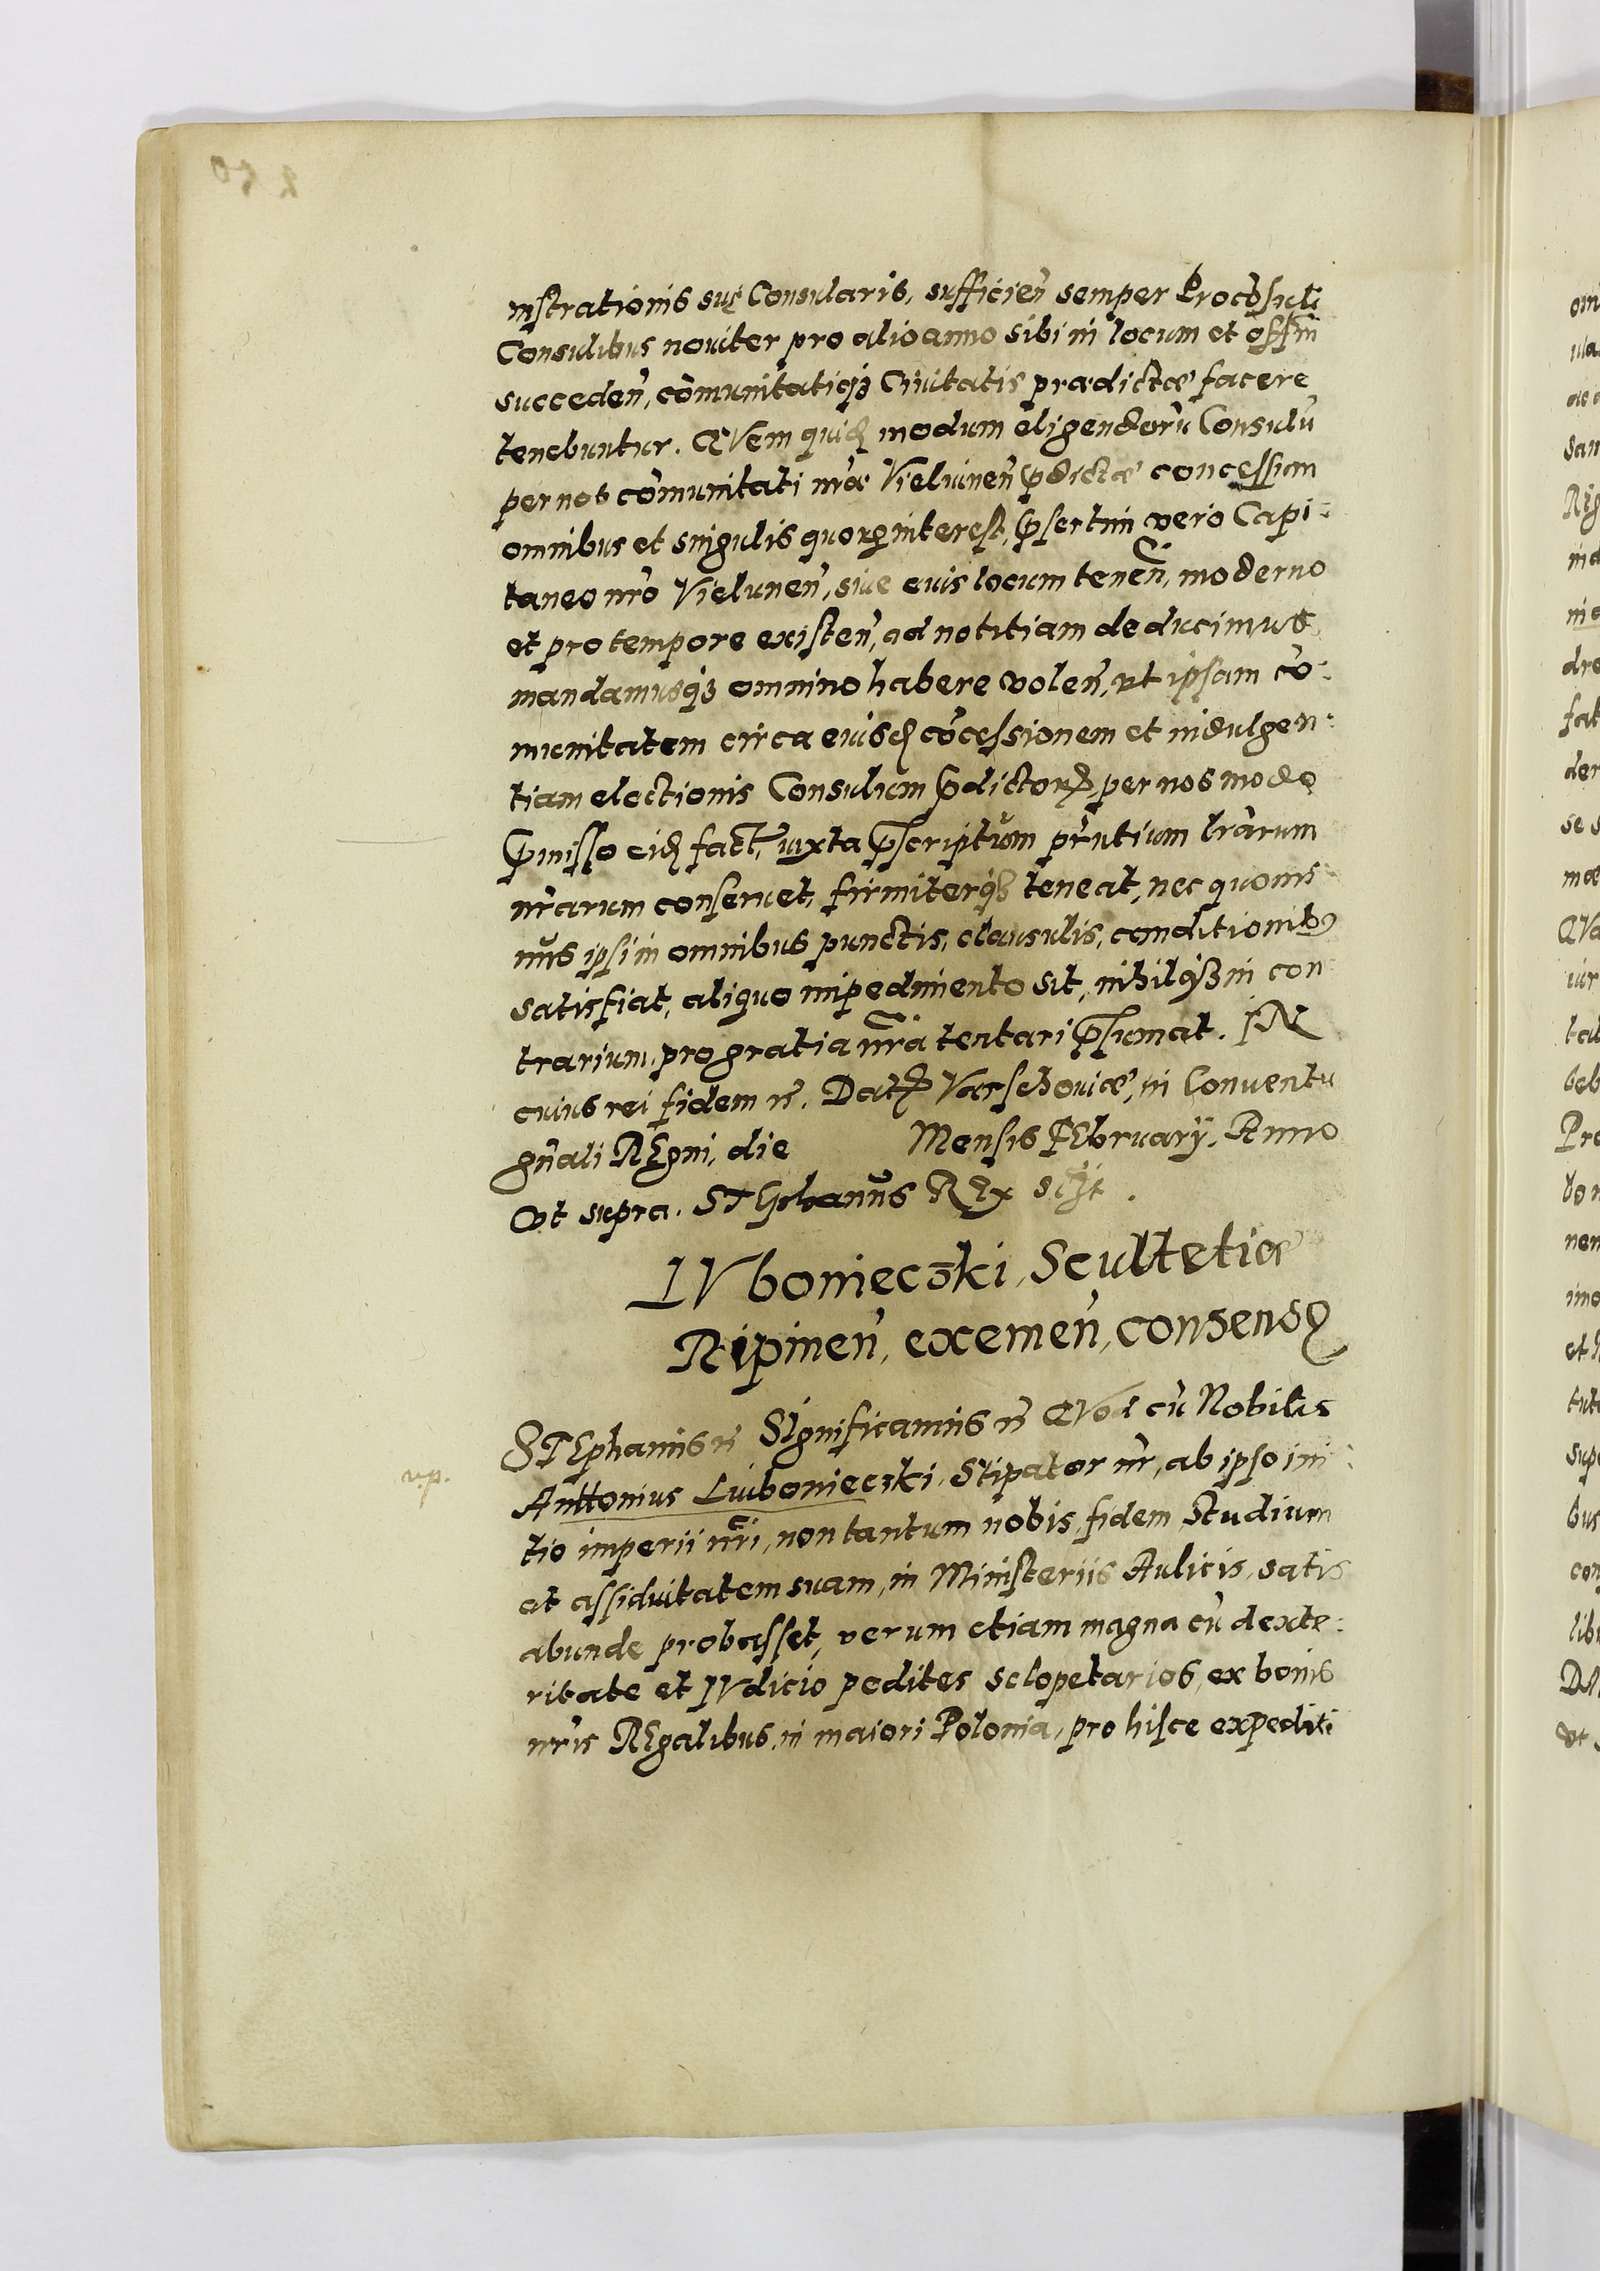 nistrationis suę Consularis, sufficien̄ semper Procōsuli
Consulibus noviter pro alio anno sibi in locum et offm̄
succeden̄, cōmunitatiqꝫ Civitatis prædictæ facere
tenebuntur. QVem quidꝫ modum eligendorū Consulū
per nos cōmunitati nr̄æ Vielunen̄ p̄dictæ concessum
omnibus et singulis quorꝫ interest, p̄sertim vero Capi-
taneo nr̄o Vielunen̄, sive euis locum tenen̄, moderno
et pro tempore existen̄, ad notitiam deducimus
mandamusqꝫ omnino habere volen̄, ut ipsam cō-
munitatem circa euisdꝫ cōcessionem et indulgen-
tiam electionis Consulum p̄dictorꝫ, per nos modo
p̄misso eidꝫ fact, iuxta p̄scriptum pr̄ntium lr̄arum
nr̄arum conservet, firmiterqꝫ teneat, nec quomi-
nus ipsi in omnibus punctis, clausulis, conditionibꝰ
satisfiat, aliquo impedimento sit, nihilqꝫ in con-
trarium, pro gratia nr̄a tentari p̄sumat. IN
cuius rei fidem etc. Datꝫ Varschoviæ, in Conventu
gn̄ali REgni, die Mensis FEbruarÿ. Anno
Vt supra. STEphanus REx sspt.
LVbonieczki, Scultetiæ
Ripinen̄, exemen̄, consensꝰ
STEphanus etc SIgnificamus etc QVod cū Nobilis
Anttonius Luibonieczki, Stipator nr̄, ab ipso ini-
tio imperii nr̄i, non tantum nobis, fidem, Studium
et assiduitatem suam, in Ministeriis Aulicis, satis
abunde probasset, verum etiam magna cū dexte-
ritate et IVdicio pedites sclopetarios, ex bonis
nr̄is REgalibus, in maiori Polonia, pro hisce expediti